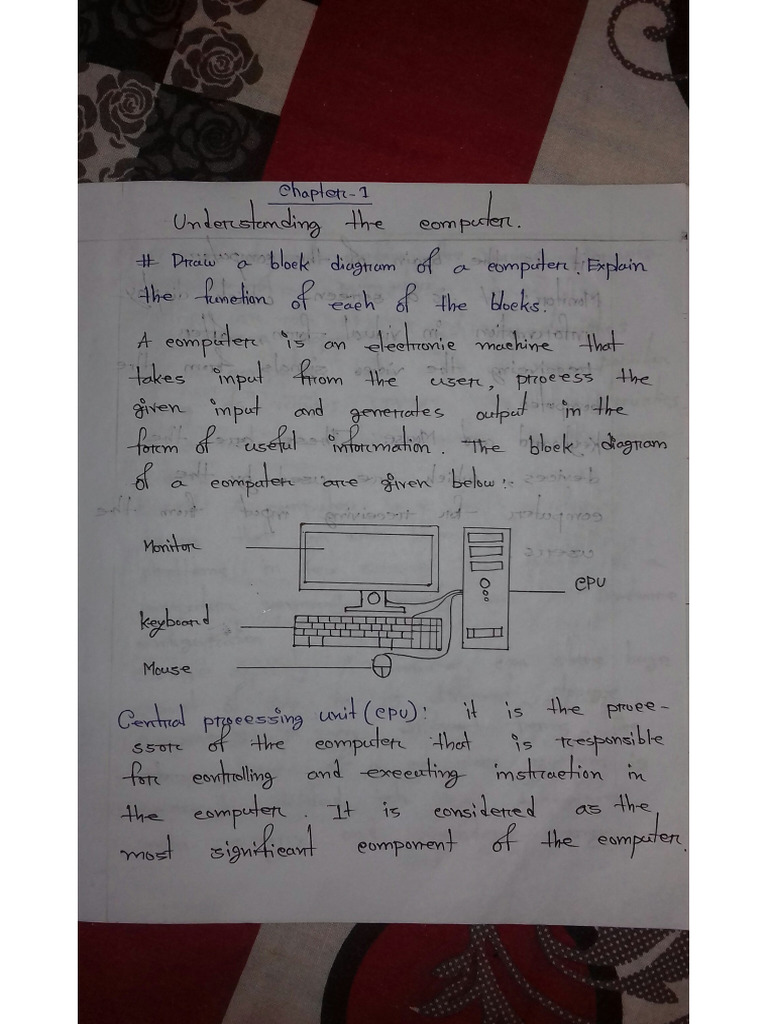 Chapter-1
Understanding the computer.
# Draw a block diagram of a computer. Explain
the function of each of the blocks.
A computer is an electronic machine that
takes input from the user, process the
given input and generates output in the
form of useful information. The block diagram
of a computer are given below:-
Monitor
CPU
Keyboard
Mouse
Central processing unit (CPU): it is the proce-
ssor of the computer that is responsible
for controlling and executing instruction in
the computer. It is considered as the
most significant component of the computer.